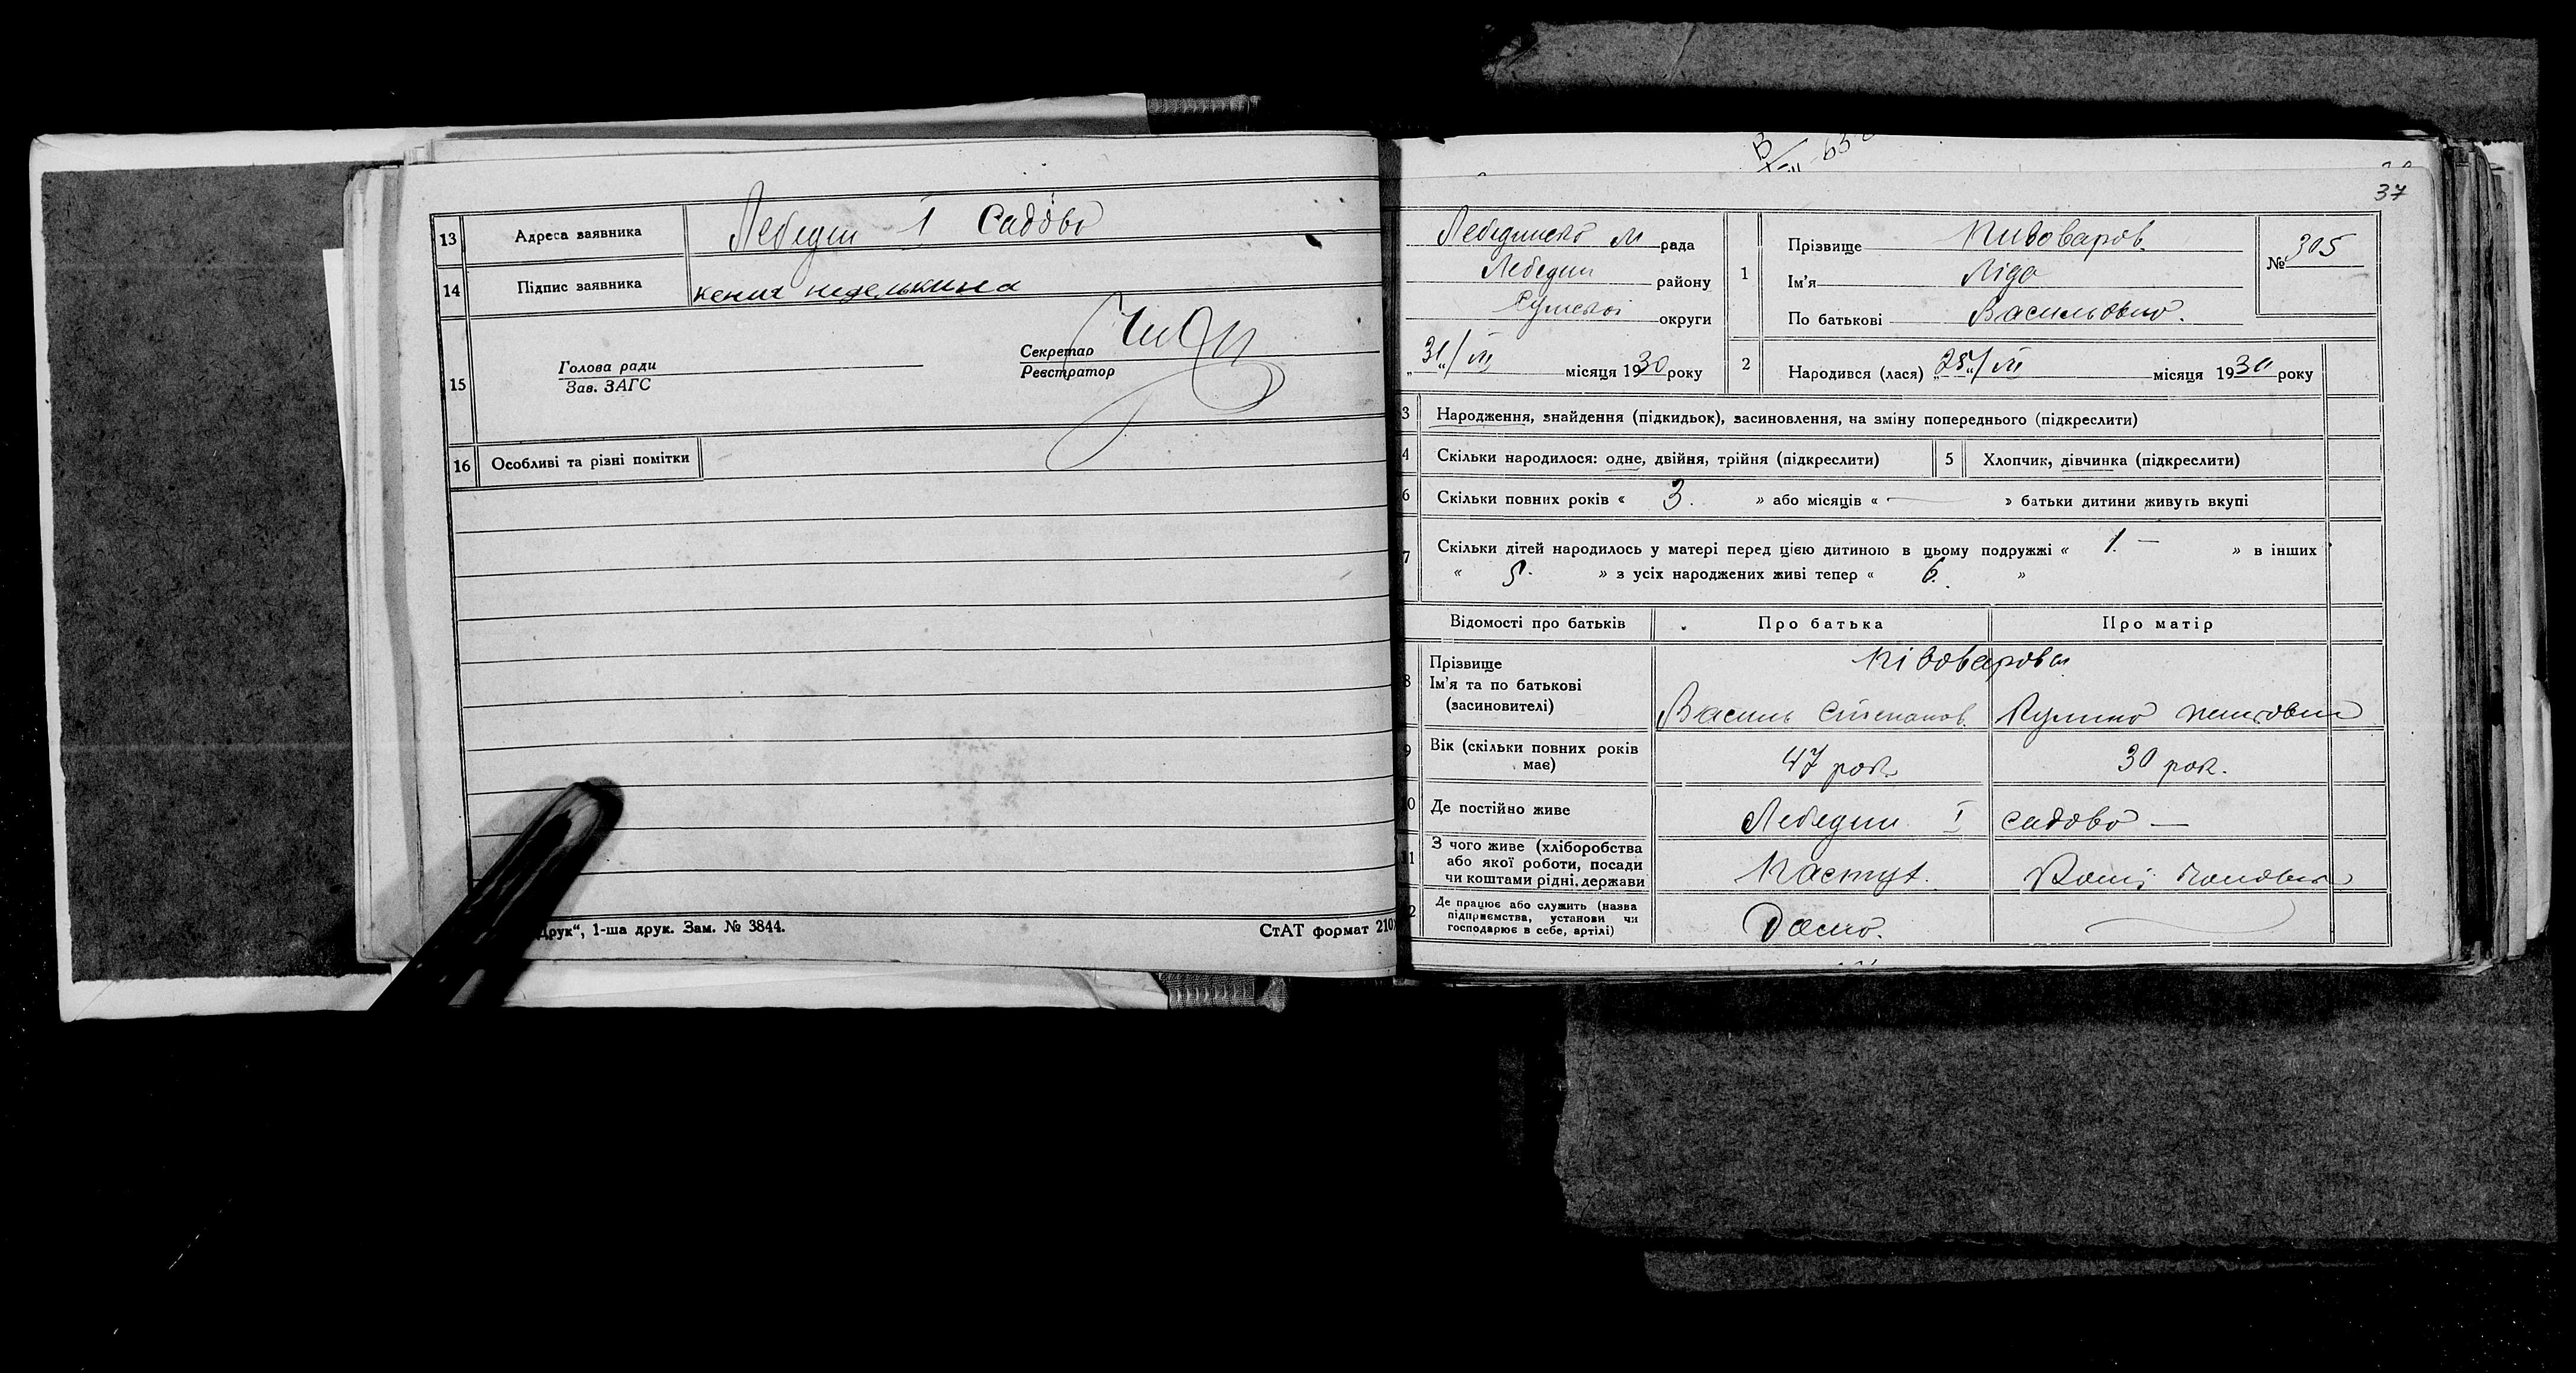 13 Адреса заявника Лебедин 1 Садово
14 Підпис заявника
15 Голова ради
Зав. ЗАГС
Секретар
Реєстратор
16 Особливі та різні помітки
Друк“, 1-ша друк. Зам. № 3844.
СтАТ формат 210
37
Лебединсько М рада
Лебедин району
Сумської округи
„31„/III місяця 1930 року
1 Прізвище Пивоваров
Ім'я Ліда
По батькові Васильовно.
№ 305
2 Народився (лася) „28„/III місяця 1930 року
3 Народження, знайдення (підкидьок), засиновлення, на зміну попереднього (підкреслити)
4 Скільки народилося: одне, двійня, трійня (підкреслити)
5 Хлопчик, дівчинка (підкреслити)
6 Скільки повних років « 3. » або місяців « — » батьки дитини живуть вкупі
7 Скільки дітей народилось у матері перед цією дитиною в цьому подружжі « 1. — » в інших
« 5. » з усіх народжених живі тепер « 6. »
Відомості про батьків Про батька Про матір
8 Прізвище
Ім'я та по батькові
(засиновителі)
Півоварови
Василь Степанов.
9 Вік (скільки повних років
має)
47 рок.
30 рок.
10 Де постійно живе Лебедин I садово —
11 З чого живе (хліборобства
або якої роботи, посади
чи коштами рідні, держави
Пастух.
12 Де працює або служить (назва
підприємства, установи чи
господарює в себе, артілі)